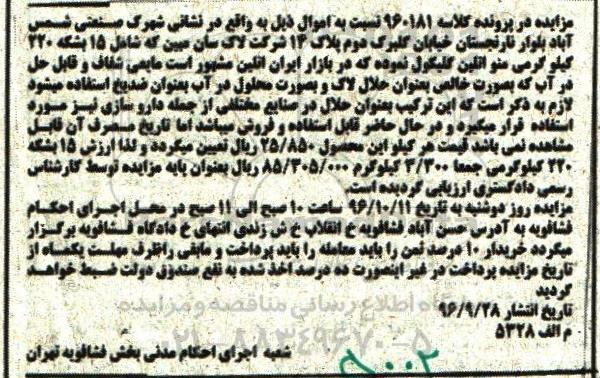 مزایده در پرونده کلاسه ۹۶۰۱۸۱ نسبت به اموال ذیل به واقع در نشانی شهرک صنعتی شمس
آباد بلوار نارنجستان خیابان گلبرگ دوم پلاک ۱۳ شرکت لاک سان مبین که شامل ۱۵ بشکه ۲۲۰
کیلو گرمی منو اتلین گلیکول نموده که در بازار ایران اتلین مشهور است مایعی شفاف و قابل حل
در آب که بصورت خالص بعنوان حلال لاک و بصورت محلول در آب بعنوان ضدیخ استفاده میشود
لازم به ذکر است که این ترکیب بعنوان حلال در صنایع مختلفی از جمله دارو سازی نیز مورد
استفاده قرار میگیرد و در حال حاضر قابل استفاده و فروش میباشد اما تاریخ مصرف آن قابل
مشاهده نمی باشد قیمت هر کیلو این محصول ۲۵/۸۵۰ ریال تعیین میگردد و لذا ارزش ۱۵ بشکه
۲۲۰ کیلوگرمی جمعا ۳/۳۰۰ کیلوگرم ۸۵/۳۰۵/۰۰۰ ریال بعنوان پایه مزایده توسط کارشناس
رسمی دادگستری ارزیابی گردیده است.
مزایده روز دوشنبه به تاریخ ۹۶/۱۰/۱۱ ساعت ۱۰ صبح الی ۱۱ صبح در محل اجرای احکام
فشافویه به آدرس حسن آباد فشافویه خ انقلاب خ ش زندی انتهای خ دادگاه فشافویه برگزار
میگردد خریدار ۱۰ درصد ثمن را باید معامله را باید پرداخت و مابقی راظرف مهلت یکماه از
تاریخ مزایده پرداخت در غیر اینصورت ده درصد اخذ شده به نفع صندوق دولت ضبط خواهد
گردید
تاریخ انتشار ۹۶/۹/۲۸
م الف ۵۳۲۸
شعبه اجرای احکام مدنی بخش فشافویه تهران
پایگاه اطلاع رسانی مناقصه و مزایده
۰۲۱-۸۸۳۴۹۶۷۰-۵